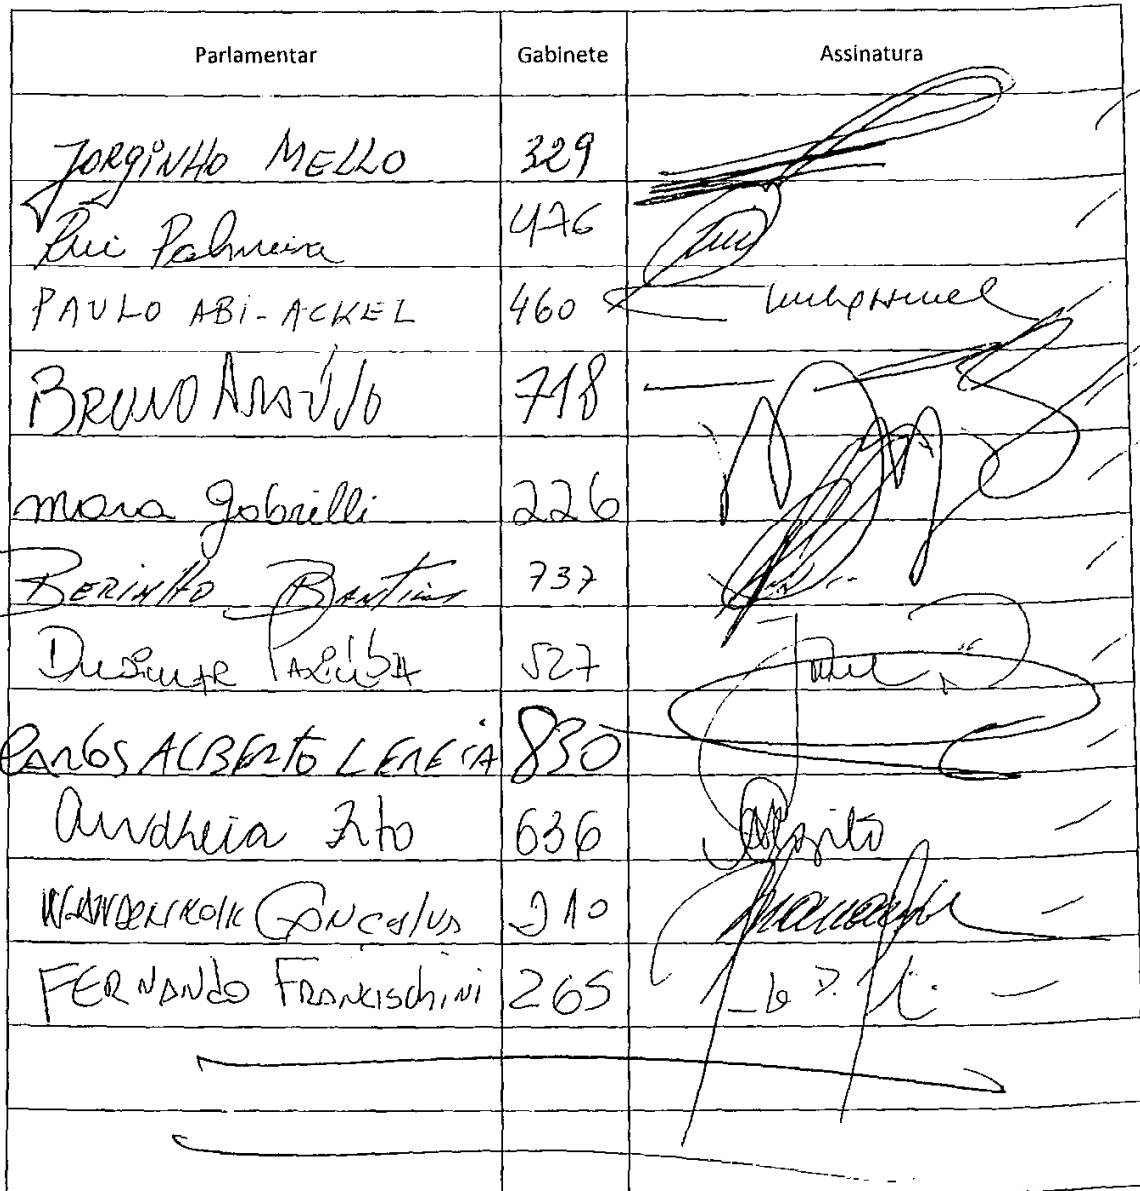 Parlamentar Gabinete Assinatura
JORGINHO MELLO 329
Rui Palmeira 476
PAULO ABI-ACKEL 460
BRUNO ARAÚJO 718
mara gabrilli 226
BERINHO BANTIM 737
DUDIMAR PAXIÚBA 527
CARLOS ALBERTO LERÉIA 830
Andreia Zito 636
WANDENKOLK GONÇALVES 210
FERNANDO FRANCISCHINI 265